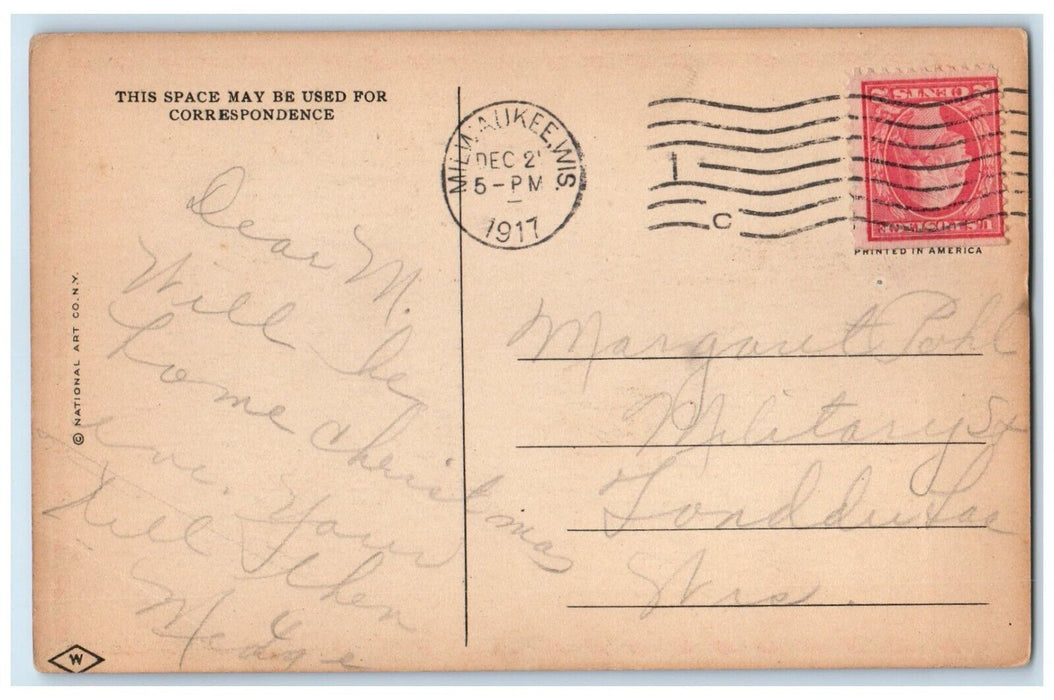 THIS SPACE MAY BE USED FOR
CORRESPONDENCE
Dear M.
Will be
home Christmas
eve. Your
till then
Madge
© NATIONAL ART CO. N.Y.
W
MILWAUKEE, WIS.
DEC 2
5-PM
1917
1
C
2 CENTS 2
U.S. POSTAGE
PRINTED IN AMERICA
Margaret Pohl
Military St
Fond du Lac
Wis.